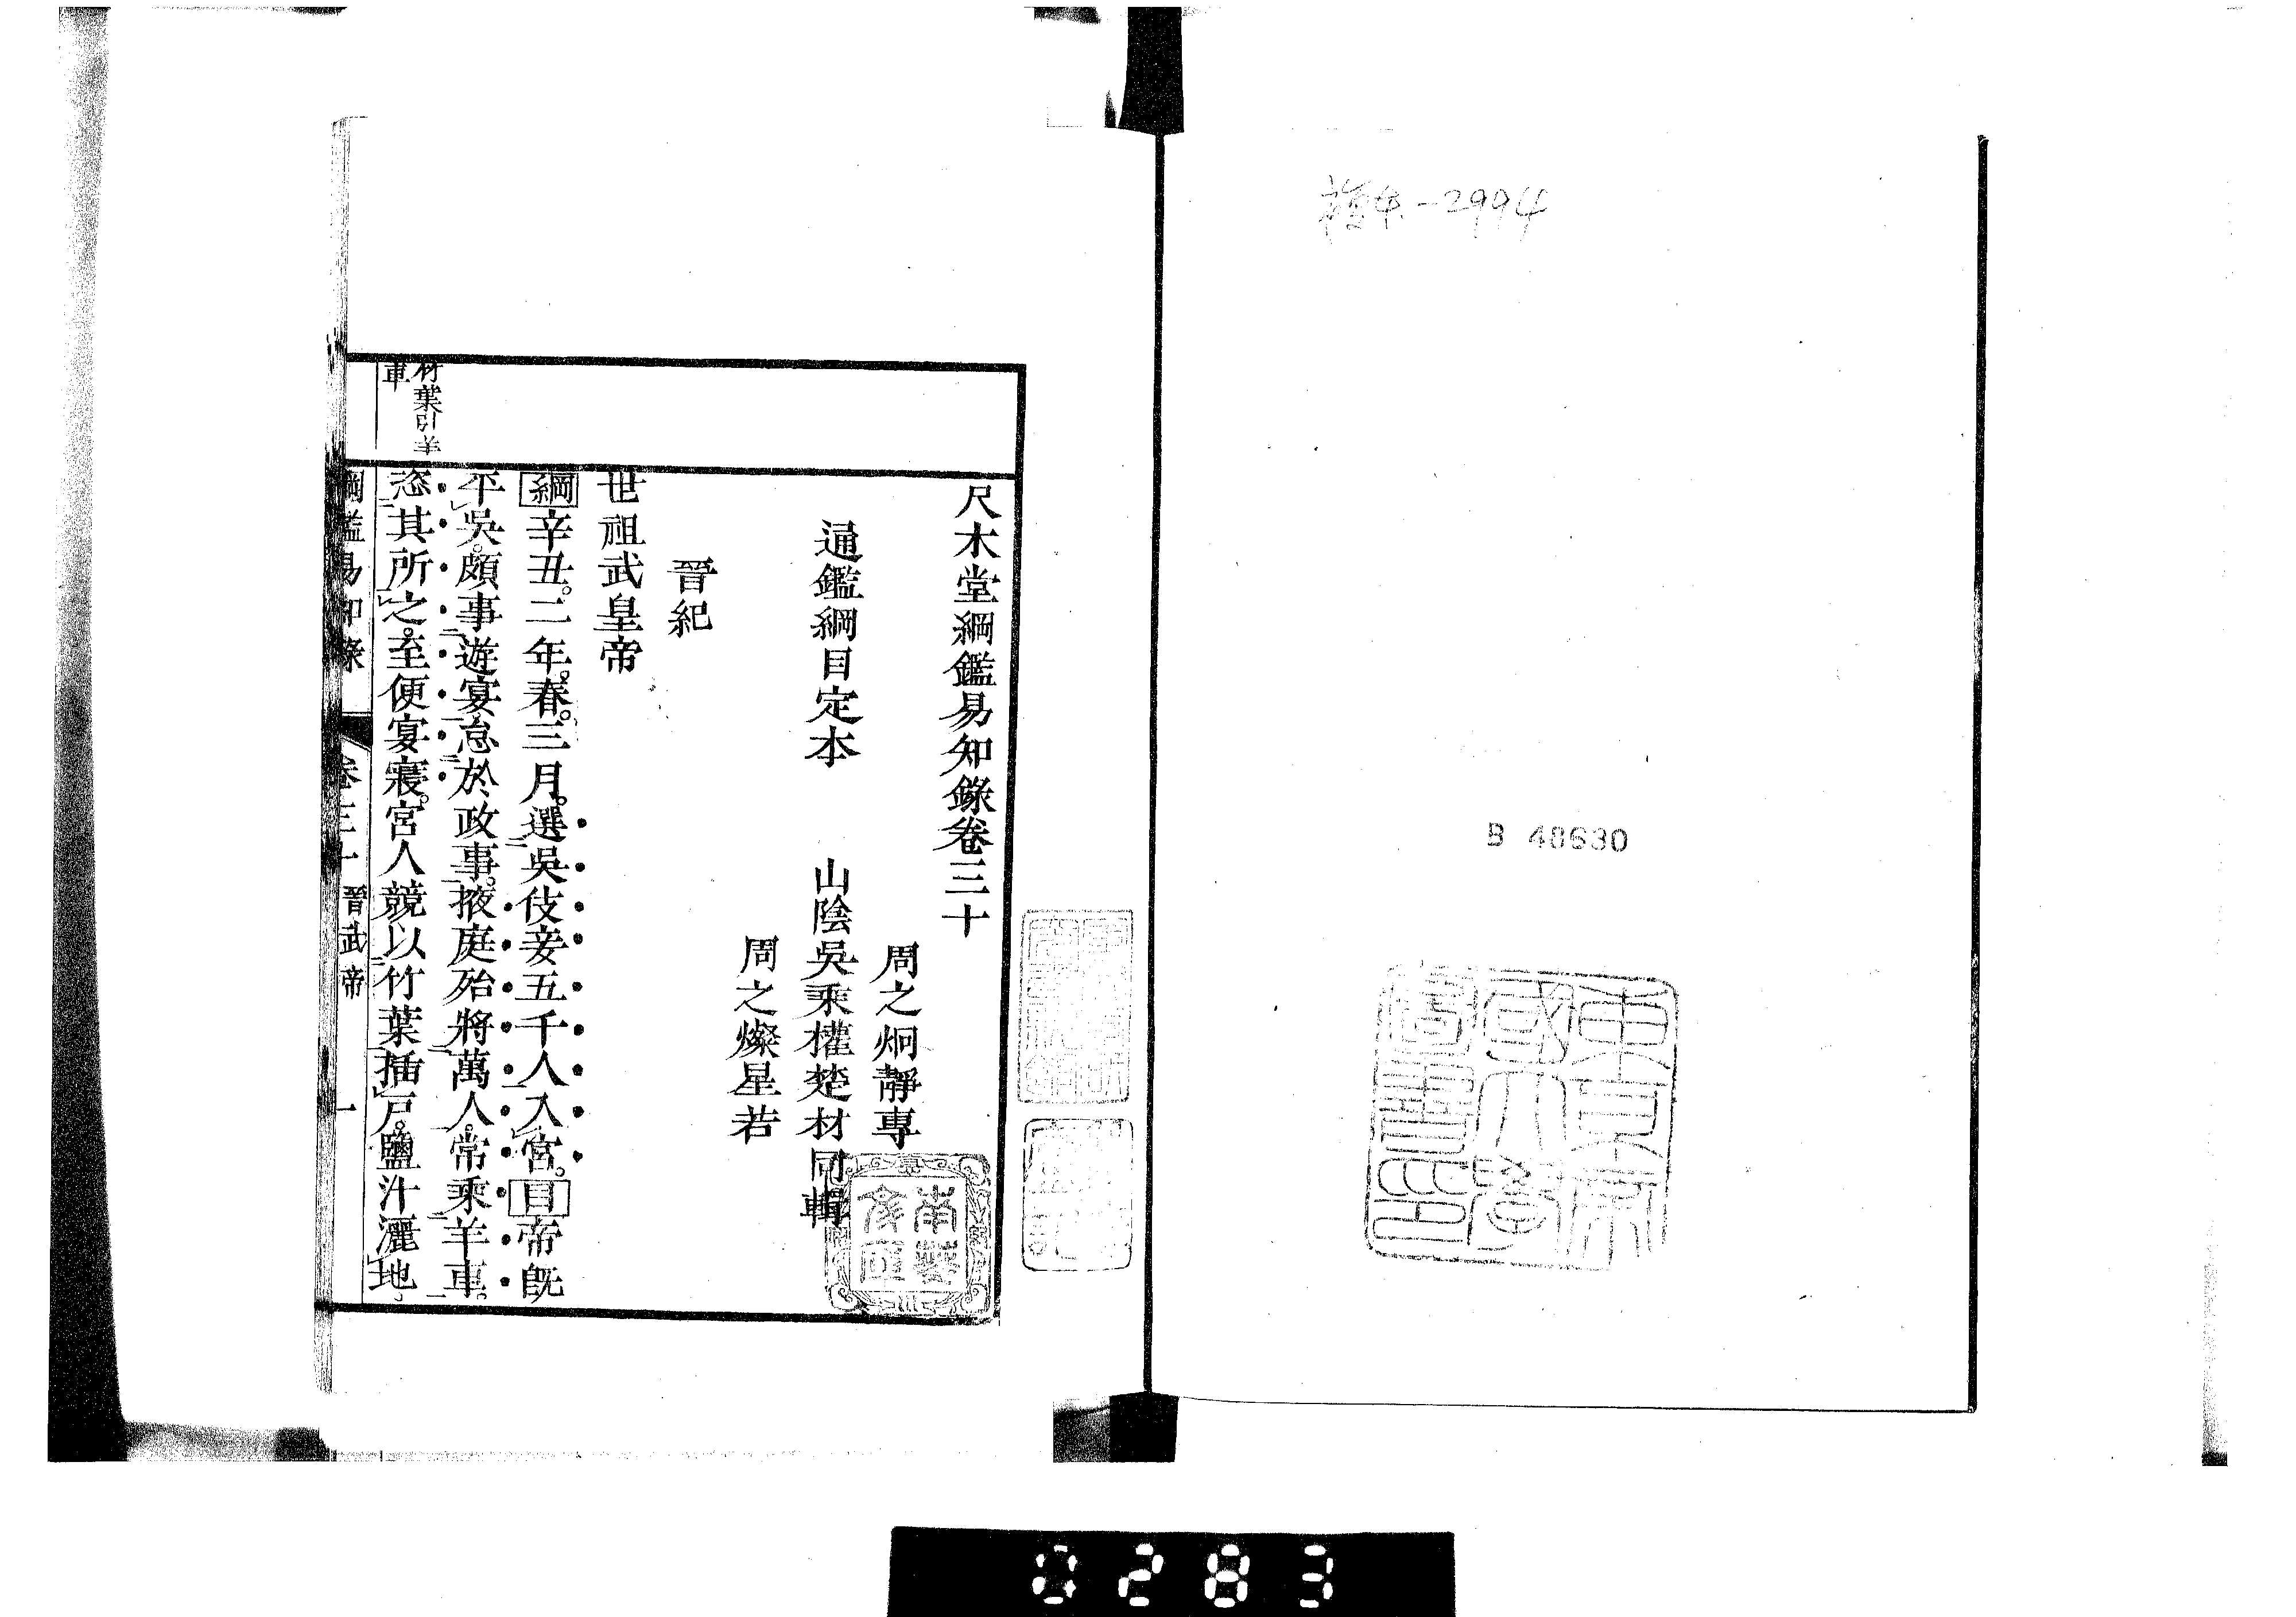 B 48630
東京
帝國大學
圖書印
尺木堂綱鑑易知錄卷三十
周之炯靜專
通鑑綱目定本 山陰吳乘權楚材同輯
周之燦星若
晉紀
世祖武皇帝
綱辛丑。二年。春。三月。選吳伎妾五千人入宮。目帝既
平吳。頗事遊宴。怠於政事。掖庭殆將萬人。常乘羊車。
恣其所之。至便宴寢。宮人競以竹葉插戶。鹽汁灑地
竹葉引羊
車
綱鑑易知錄 卷三十 晉武帝 一
南葵
文庫
0283